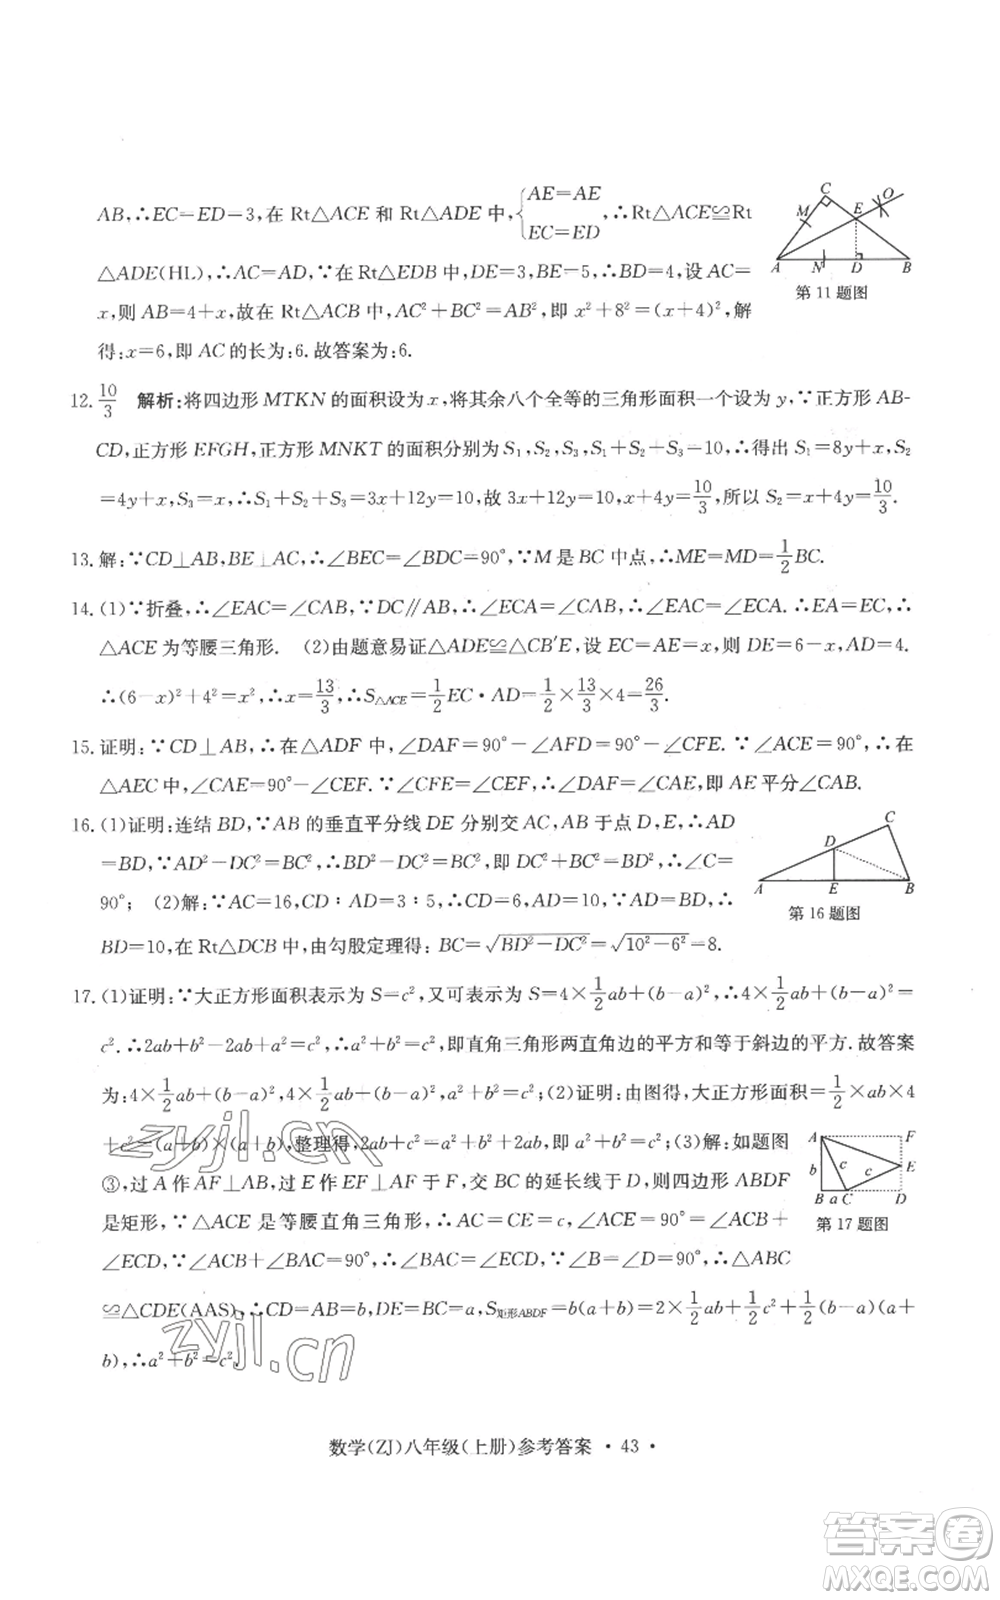 AB,∴EC=ED=3,在 Rt△ACE 和 Rt△ADE 中,{AE=AE EC=ED,∴Rt△ACE≌Rt
△ADE(HL),∴AC=AD,∵在 Rt△EDB 中,DE=3,BE=5,∴BD=4,设 AC=
x,则 AB=4+x,故在 Rt△ACB 中,AC²+BC²=AB²,即 x²+8²=(x+4)²,解
得:x=6,即 AC 的长为:6.故答案为:6.
C
O
M
E
A
N
D
B
第 11 题图
12. 10/3 解析:将四边形 MTKN 的面积设为 x,将其余八个全等的三角形面积一个设为 y,∵正方形 AB-
CD,正方形 EFGH,正方形 MNKT 的面积分别为 S₁,S₂,S₃,S₁+S₂+S₃=10,∴得出 S₁=8y+x,S₂
=4y+x,S₃=x,∴S₁+S₂+S₃=3x+12y=10,故 3x+12y=10,x+4y=10/3,所以 S₂=x+4y=10/3.
13. 解:∵CD⊥AB,BE⊥AC,∴∠BEC=∠BDC=90°,∵M 是 BC 中点,∴ME=MD=1/2BC.
14. (1)∵折叠,∴∠EAC=∠CAB,∵DC∥AB,∴∠ECA=∠CAB,∴∠EAC=∠ECA.∴EA=EC,∴
△ACE 为等腰三角形. (2)由题意易证△ADE≌△CB′E,设 EC=AE=x,则 DE=6-x,AD=4.
∴(6-x)²+4²=x²,∴x=13/3,∴S△ACE=1/2EC·AD=1/2×13/3×4=26/3.
15. 证明:∵CD⊥AB,∴在△ADF 中,∠DAF=90°-∠AFD=90°-∠CFE.∵∠ACE=90°,∴在
△AEC 中,∠CAE=90°-∠CEF.∵∠CFE=∠CEF,∴∠DAF=∠CAE,即 AE 平分∠CAB.
16. (1)证明:连结 BD,∵AB 的垂直平分线 DE 分别交 AC,AB 于点 D,E,∴AD
=BD,∵AD²-DC²=BC²,∴BD²-DC²=BC²,即 DC²+BC²=BD²,∴∠C=
90°; (2)解:∵AC=16,CD∶AD=3∶5,∴CD=6,AD=10,∵AD=BD,∴
BD=10,在 Rt△DCB 中,由勾股定理得:BC=√(BD²-DC²)=√(10²-6²)=8.
C
D
A
E
B
第 16 题图
17. (1)证明:∵大正方形面积表示为 S=c²,又可表示为 S=4×1/2ab+(b-a)²,∴4×1/2ab+(b-a)²=
c².∴2ab+b²-2ab+a²=c²,∴a²+b²=c²,即直角三角形两直角边的平方和等于斜边的平方.故答案
为:4×1/2ab+(b-a)²,4×1/2ab+(b-a)²,a²+b²=c²;(2)证明:由图得,大正方形面积=1/2×ab×4
+c²=(a+b)×(a+b),整理得,2ab+c²=a²+b²+2ab,即 a²+b²=c²;(3)解:如题图
③,过 A 作 AF⊥AB,过 E 作 EF⊥AF 于 F,交 BC 的延长线于 D,则四边形 ABDF
是矩形,∵△ACE 是等腰直角三角形,∴AC=CE=c,∠ACE=90°=∠ACB+
∠ECD,∵∠ACB+∠BAC=90°,∴∠BAC=∠ECD,∵∠B=∠D=90°,∴△ABC
≌△CDE(AAS),∴CD=AB=b,DE=BC=a,S矩形ABDF=b(a+b)=2×1/2ab+1/2c²+1/2(b-a)(a+
b),∴a²+b²=c².
A
F
b
c
c
E
B
a
C
D
第 17 题图
zyjl.cn
zyjl.cn
数学(ZJ)八年级(上册)参考答案 · 43 ·
答案卷
MXQE.COM